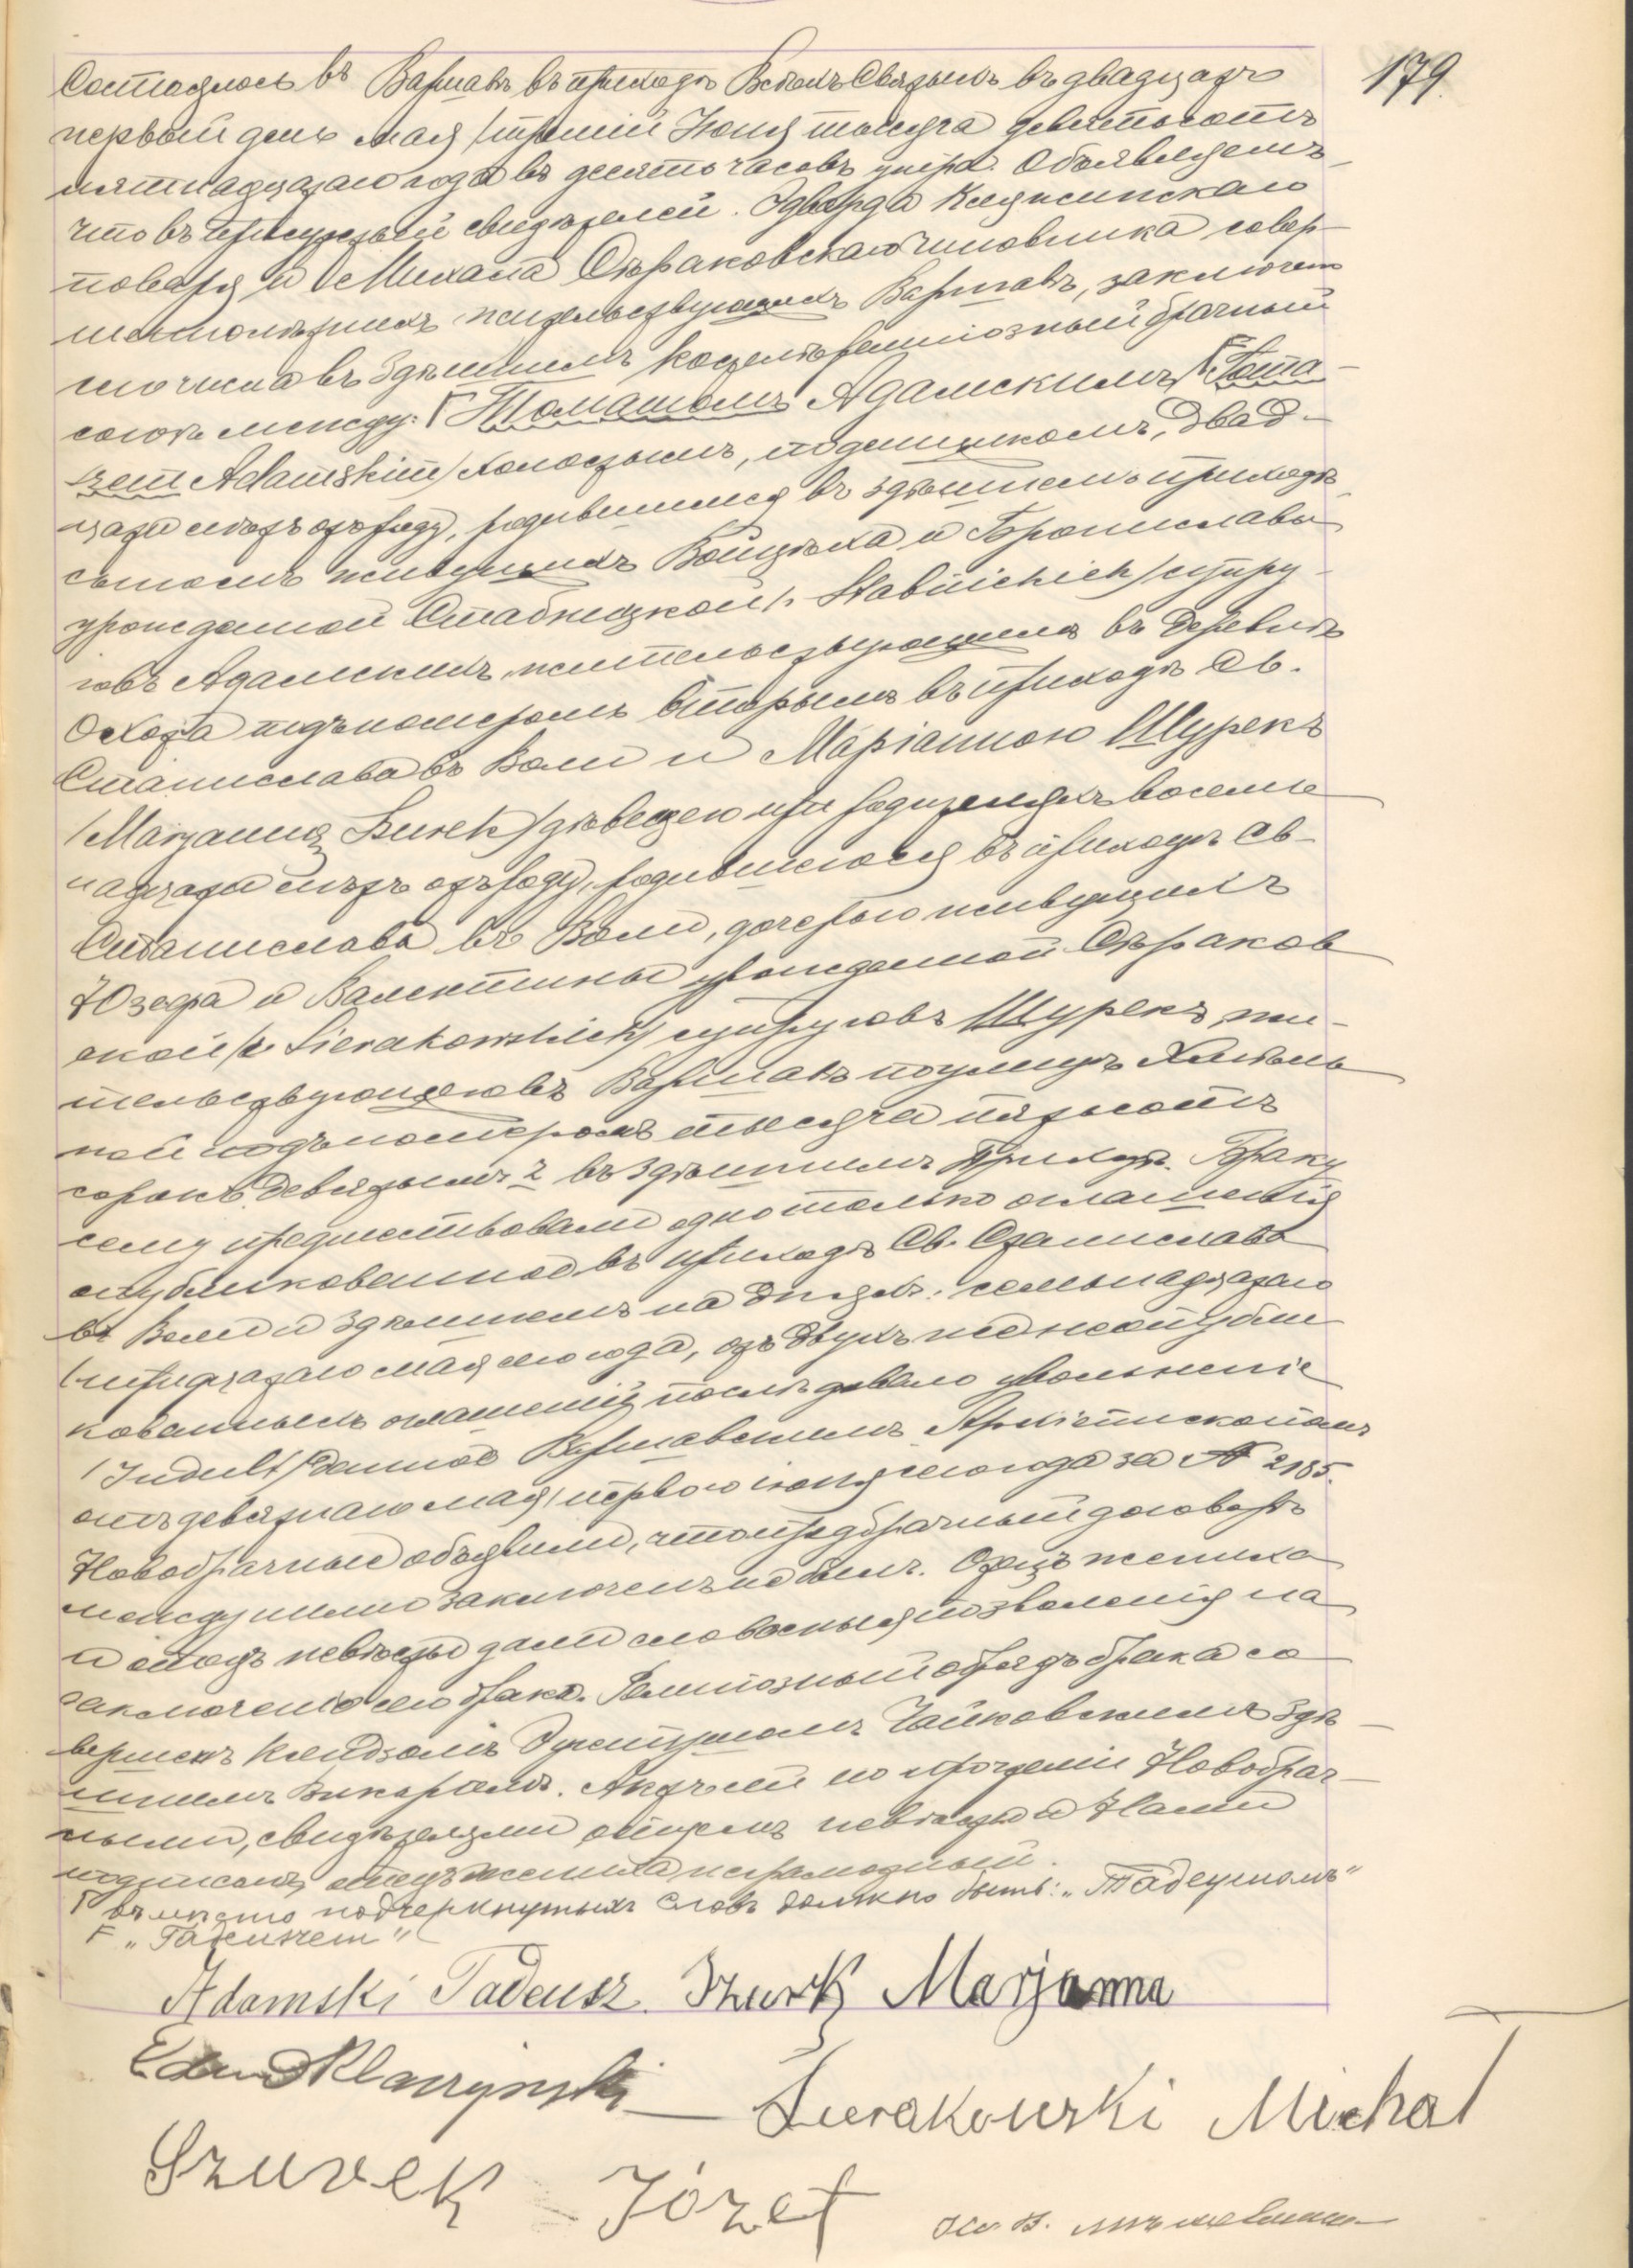 179
Состоялось въ Варшавѣ въ приходѣ Всѣхъ Святыхъ въ двадцать
первый день Мая /третій Іюня тысяча девятьсотъ
пятнадцатаго года въ десять часовъ утра. Объявляемъ
что въ присутствіи свидѣтелей. Эдварда Клясинскаго
повара и Михала Сѣраковскаго чиновника совер-
шеннолѣтнихъ жительствующихъ Варшавѣ, заключенъ
сего числа въ здѣшнемъ костелѣ религіозный брачный
союзъ между: Г Томашомъ Адамскимъ /F Toma-
szem Adamskim/ холостымъ, поденщикомъ, двад-
цати лѣтъ отъ роду, родившимся въ здѣшнемъ приходѣ
сыномъ живущихъ Войцѣха и Брониславы
урожденной Стабницкой /z Stabnickich/ супру-
говъ Адамскихъ, жительствующимъ въ деревнѣ
Охота подъ номеромъ вторымъ въ приходѣ Св.
Станислава въ Воли и Маріанною Шурекъ
/Maryanną Szurek/ дѣвицею при родителяхъ восем-
надцати лѣтъ отъ роду, родившеюся въ приходѣ Св-
Станислава въ Воли, дочерью живущихъ
Юзефа и Валентины урожденной Сѣраков
ской /z Sierakowskich/ супруговъ Шурекъ, жи-
тельствующею въ Варшавѣ по улицѣ Хлѣбь
ной подъ номеромъ тысяча пятьсотъ
сорокъ девятымъ z въ здѣшнемъ приходѣ. Браку
сему предшествовали одно только оглашенія
опубликованное въ приходѣ Св. Станислава
въ Воли и здѣшнемъ на дняхъ: семьнадцатаго
/тридцатаго мая сего года, отъ двухъ же неопубли
кованныхъ оглашеній послѣдовало увольненіе
/Indult/ данное Варшавскимъ Архіепископомъ
отъ девятнаго мая /перваго іюня сего года за № 2185.
Новобрачные объявили, что предбрачный договоръ
между ними заключенъ не былъ. Отецъ жениха
и отецъ невѣсты дали словесныя позволенія на
заключеніе сего брака. Религіозный обрядъ брака со
вершенъ Ксендзомъ Чайковскимъ здѣ-
шнимъ Викаріемъ. Актъ сей по прочтеніи Новобрач-
ными, свидѣтелями отцемъ невѣсты и Нами
подписанъ, отецъ жениха неграмотный.
Г въмѣсто подчеркнутыхъ словъ должно быть: „Тадеушомъ"
F „Tadeuszem"
Adamski Tadeusz. Szurk Marjanna
Edward Klaszynski — Sierakowski Michał
Szurek – Józef